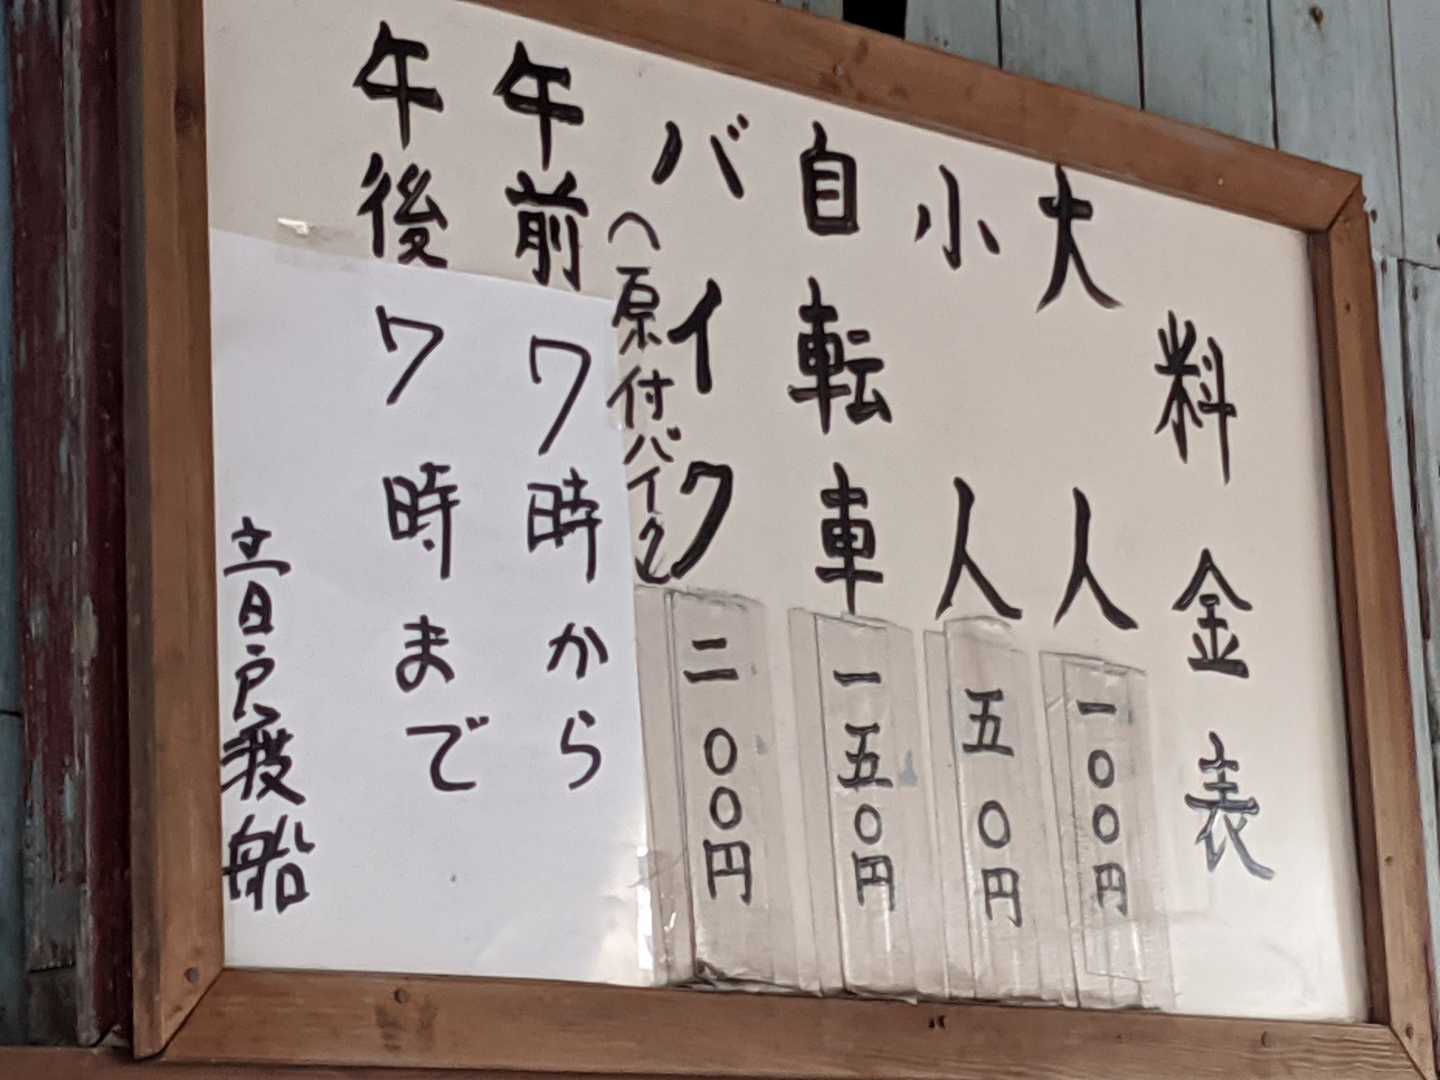 料金表
大人 一〇〇円
小人 五〇円
自転車 一五〇円
バイク 二〇〇円
(原付バイク
午前7時から
午後7時まで
音戸渡船